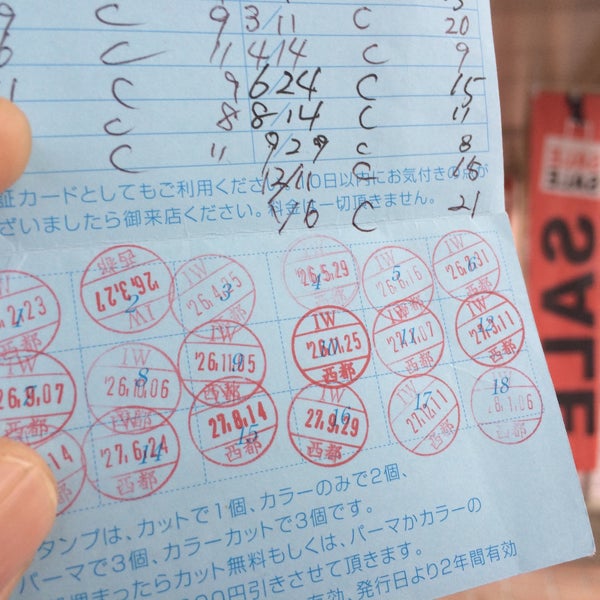 9 C 9 3/11 C 20
C 11 4/14 C 9
C 9 6/24 C 15
C 8 8/14 C 11
C 11 9/29 C 8
12/11 C 18
1/6 C 21
証カードとしてもご利用ください。10日以内にお気付きの点が
ざいましたら御来店ください。料金は一切頂きません。
西都 '26.3.27 IW 2
IW '26.4.25 3
'26.5.29 4
'26.6.16 5
IW 6
西都
'26.9.07 西都
IW '26.10.06 8
IW '26.11.05 9 西都
IW '26.11.25 10 西都
11 西都
IW '27.3.11 西都
'27.6.24 14 西都
27.8.14 15 西都
27.9.29 16 西都
17 '27.12.11 西都
18 IW 西都
タンプは、カットで1個、カラーのみで2個、
パーマで3個、カラーカットで3個です。
埋まったらカット無料もしくは、パーマかカラーの
00円引きさせて頂きます。
有効、発行日より2年間有効
SALE
SALE
SALE